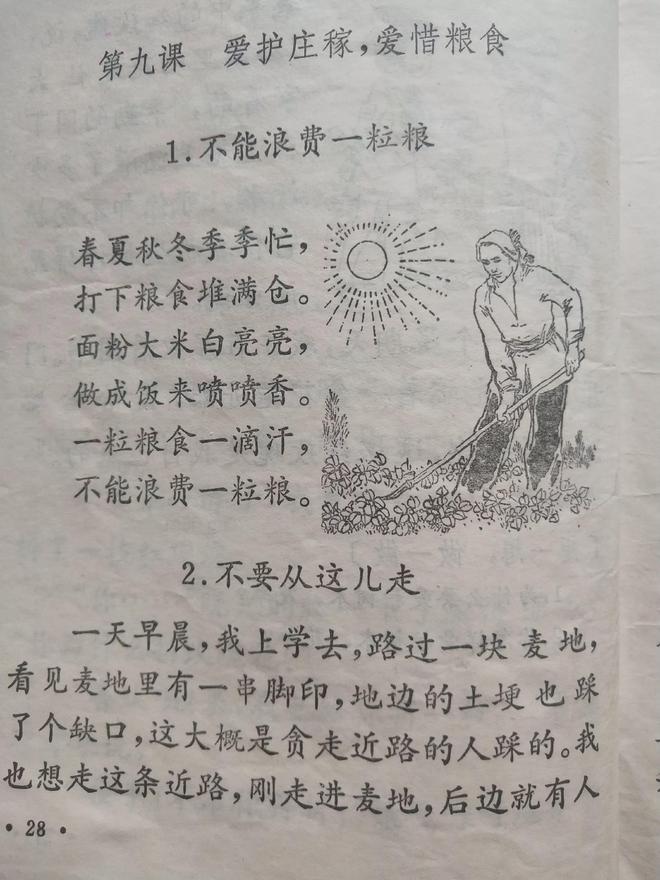 第九课 爱护庄稼，爱惜粮食
1.不能浪费一粒粮
春夏秋冬季季忙，
打下粮食堆满仓。
面粉大米白亮亮，
做成饭来喷喷香。
一粒粮食一滴汗，
不能浪费一粒粮。
2.不要从这儿走
一天早晨，我上学去，路过一块麦地，
看见麦地里有一串脚印，地边的土埂也踩
了个缺口，这大概是贪走近路的人踩的。我
也想走这条近路，刚走进麦地，后边就有人
·28·